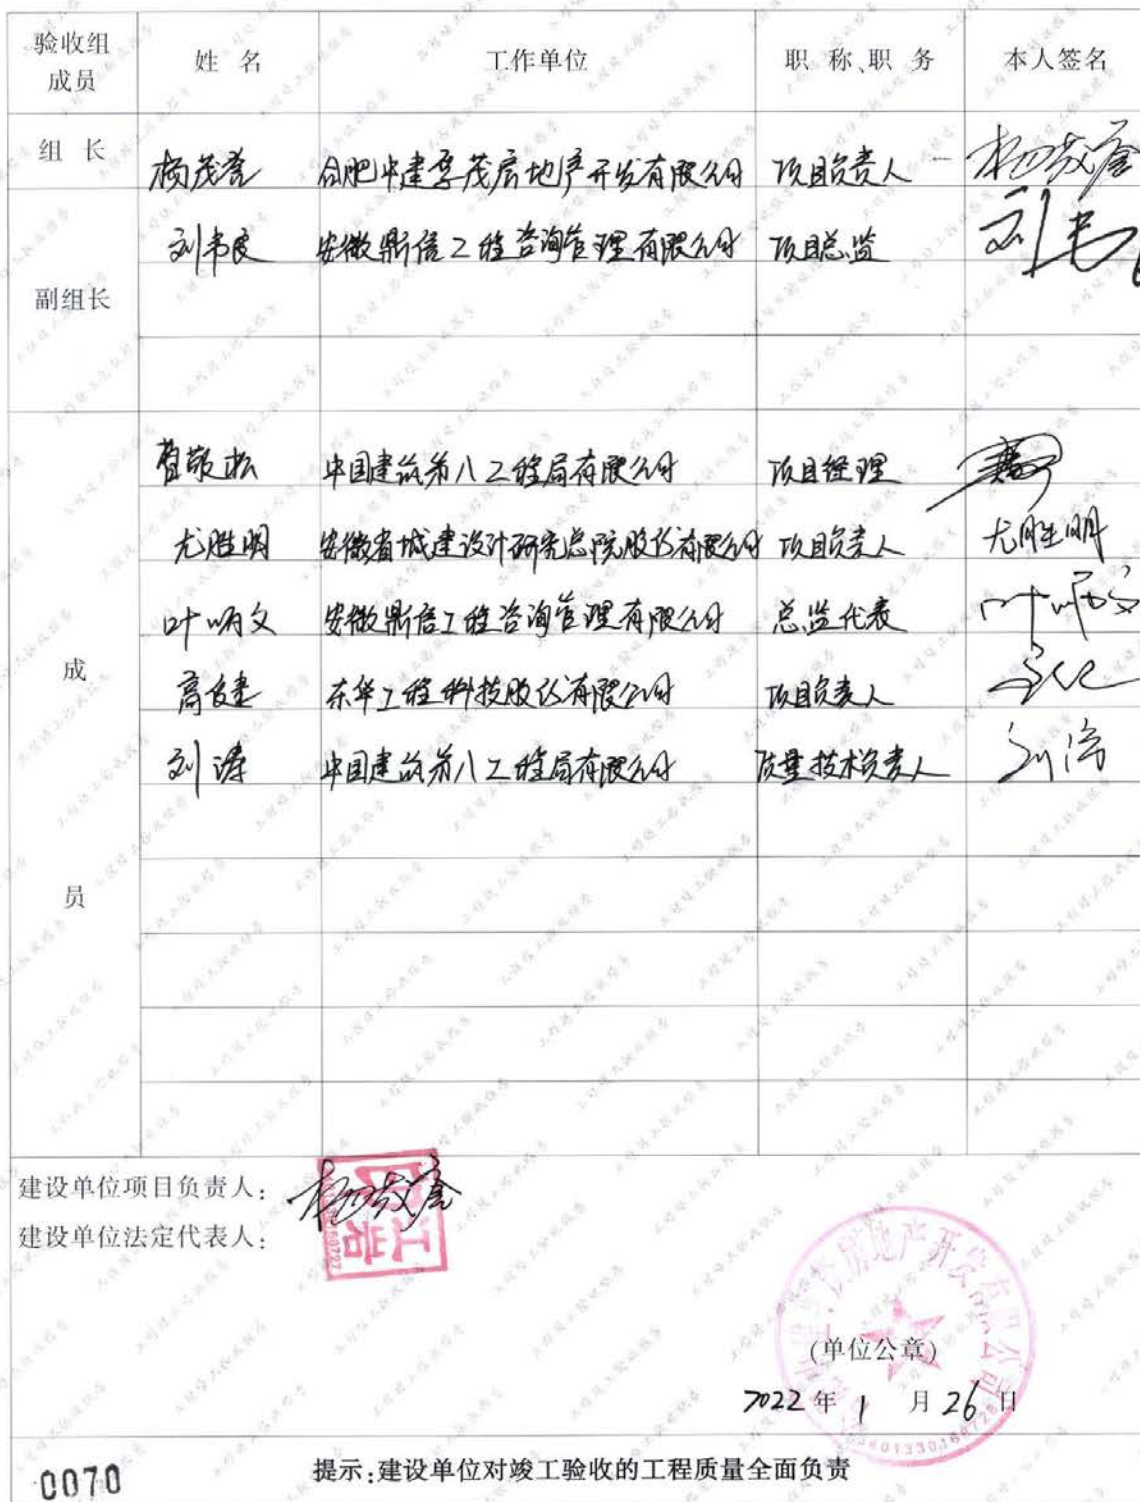 验收组成员 姓 名 工作单位 职 称、职 务 本人签名
组 长 杨茂 合肥中建孚茂房地产开发有限公司 项目负责人
刘韦良 安徽鼎信工程咨询管理有限公司 项目总监
副组长
曹敬松 中国建筑第八工程局有限公司 项目经理
尤胜明 安徽省城建设计研究总院股份有限公司 项目负责人 尤胜明
叶炳文 安徽鼎信工程咨询管理有限公司 总监代表 叶炳文
成 高 东华工程科技股份有限公司 项目负责人
刘涛 中国建筑第八工程局有限公司 质量技术负责人 刘涛
员
建设单位项目负责人：
建设单位法定代表人：
江岩印
房地产开发有限公司
(单位公章)
2022 年 1 月 26 日
0070 提示：建设单位对竣工验收的工程质量全面负责